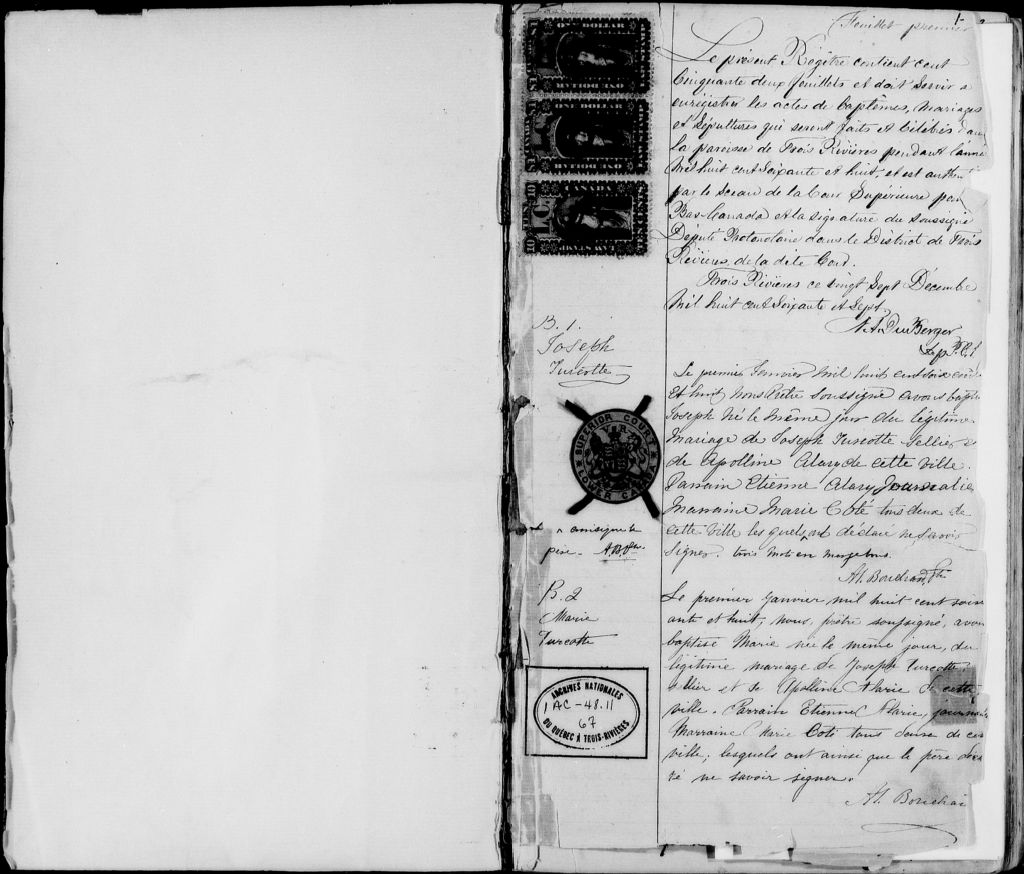 Feuillet premier
ONE DOLLAR
ONE DOLLAR
ONE DOLLAR
ONE DOLLAR
CANADA
L.C.
TEN CENTS
LAW STAMP
Le présent Régître contient cent
Cinquante deux feuillets et doit servir a
enregistrer les actes de baptêmes, mariages
et Sépultures qui seront faits et Célébrés dans
la paroisse de Trois Rivières pendant l'anné
Mil huit cent Soixante et huit, et est authen
par le sceau de la Cour Supérieure pour
Bas-Canada et la signature du soussigné
Député Protonotaire dans le District de Trois
Rivières de la dite Cour.
Trois Rivières ce vingt Sept Décembre
Mil huit cent Soixante et Sept.
Dep. P.C.S.
B. 1.
Joseph
Turcotte
Le premier Janvier mil huit cent soix
Et huit Nous Prêtre Soussigné avons bapti
Joseph né le même jour du légitime
Mariage de Joseph Turcotte Sellier &
de Apolline Alary de cette ville.
Parrain Etienne Alary Journalie
Marraine Marie Coté tous deux de
cette ville les quels ont déclaré ne Savoir
Signer. trois mots en marge bons.
SUPERIOR COURT
V R
LOWER CANADA
^ ainsi que le
père. A.B. Ptre
Al. Bouchard, Ptre
B. 2
Marie
Turcotte
Le premier janvier mil huit cent soix
ante et huit, nous, prêtre soussigné, avons
baptisé Marie née le même jour, du
légitime mariage de Joseph Turcotte,
sellier et de Apolline Alarie de cette
ville. Parrain Etienne Alarie, journali
Marraine Marie Coté tous deux de cet
ville, lesquels ont ainsi que le père décla
ré ne savoir signer.
Al. Bouchar
ARCHIVES NATIONALES
1 AC-48.11
67
DU QUÉBEC À TROIS-RIVIÈRES